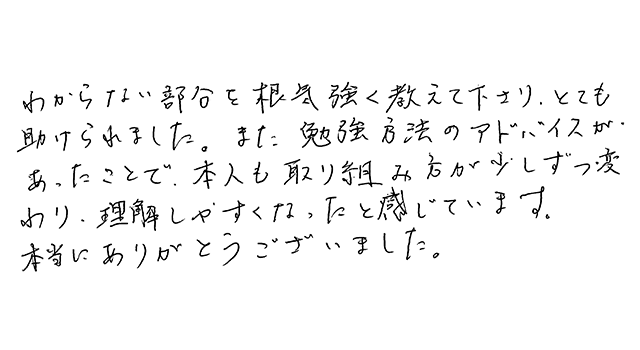 わからない部分を根気強く教えて下さり、とても
助けられました。また 勉強方法のアドバイスが
あったことで、本人も取り組み方が少しずつ変
わり、理解しやすくなったと感じています。
本当にありがとうございました。